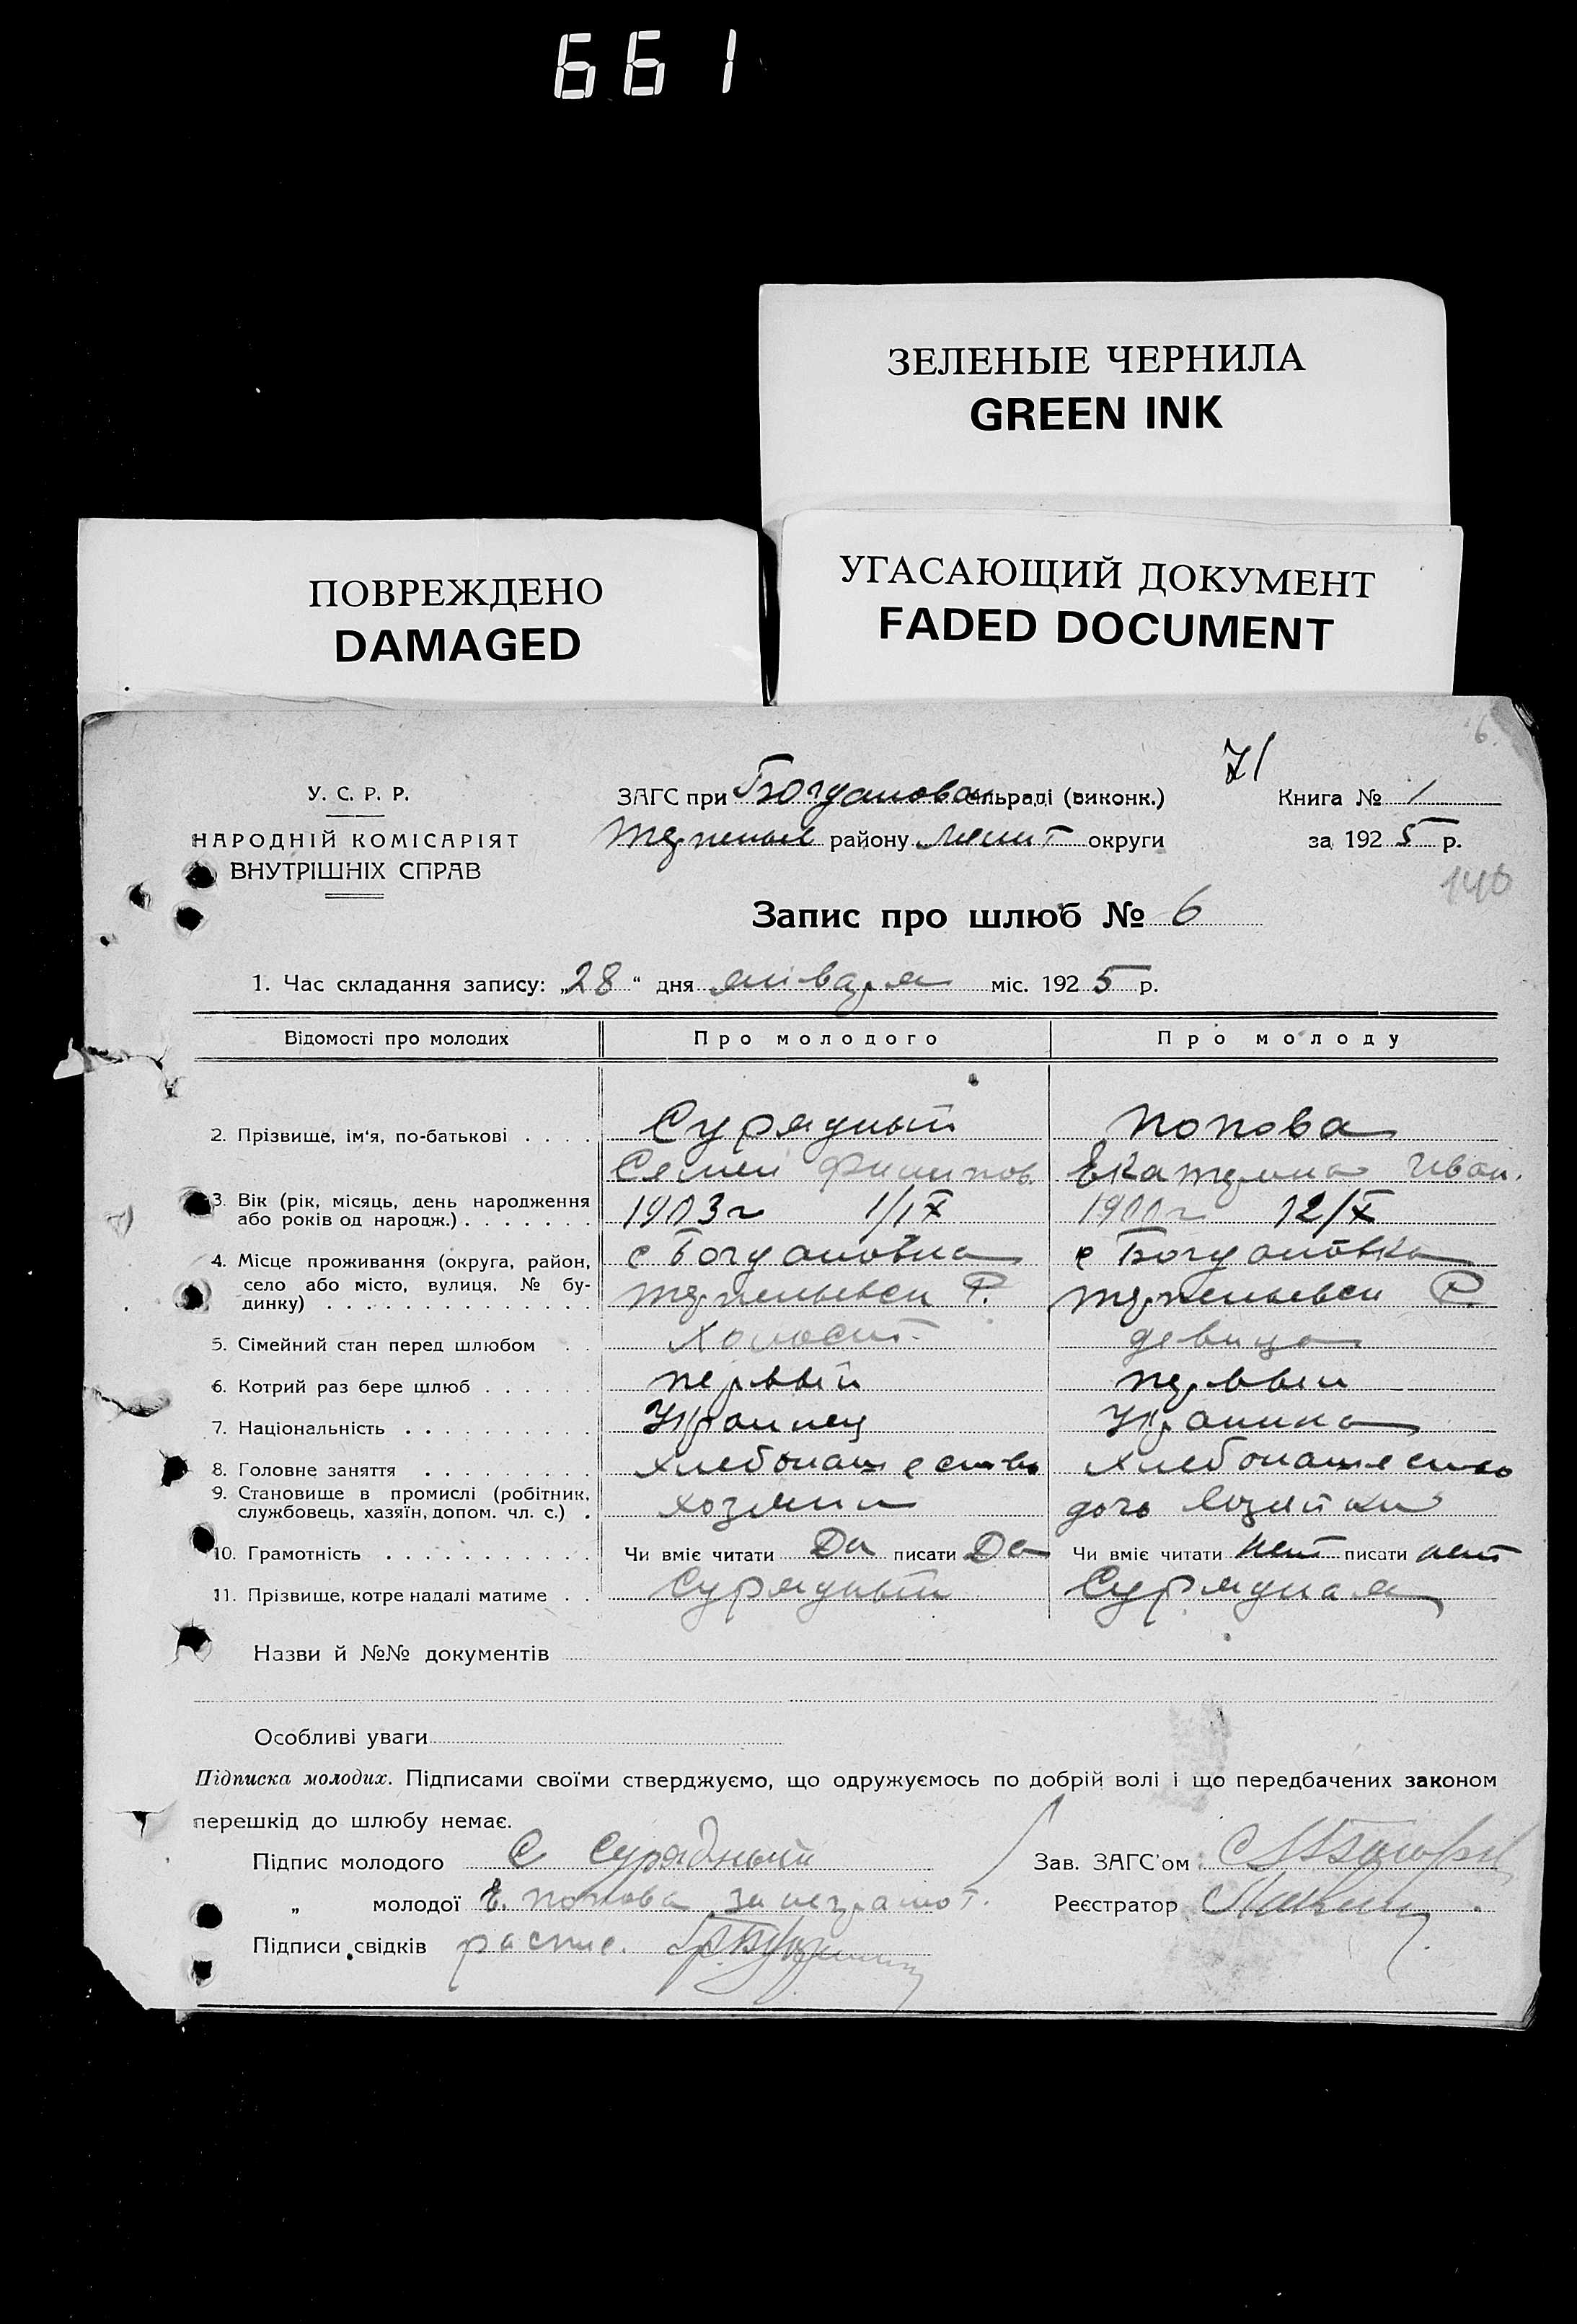 661
ЗЕЛЕНЫЕ ЧЕРНИЛА
GREEN INK
ПОВРЕЖДЕНО
DAMAGED
УГАСАЮЩИЙ ДОКУМЕНТ
FADED DOCUMENT
6.
71
У. С. Р. Р.
НАРОДНІЙ КОМІСАРІЯТ
ВНУТРІШНІХ СПРАВ
ЗАГС при Богдановск сільраді (виконк.)
Терпеньев району Мелит округи
Книга № 1
за 1925 р.
140
Запис про шлюб № 6
1. Час складання запису: „28“ дня января міс. 1925 р.
Відомості про молодих Про молодого Про молоду
2. Прізвище, ім'я, по-батькові . . . . Сурядный Попова
Семен Филипов. Екатерина Иван.
3. Вік (рік, місяць, день народження або років од народж.) . . . . . . . 1903 г 1/IX 12/X
4. Місце проживання (округа, район, село або місто, вулиця, № будинку) . . . . . . . . . . . . . . с Богдановка с Богдановка
Терпеньевск Р. Терпеньевск Р.
5. Сімейний стан перед шлюбом . . Холост девица
6. Котрий раз бере шлюб . . . . . . первый первый
7. Національність . . . . . . . . . . Украинец Украинка
8. Головне заняття . . . . . . . . . хлебопашество хлебопашество
9. Становище в промислі (робітник, службовець, хазяїн, допом. чл. с.) . хозяин дочь хозяйки
10. Грамотність . . . . . . . . . . . Чи вміє читати Да писати Да Чи вміє читати нет писати нет
11. Прізвище, котре надалі матиме . . Сурядный Сурядная
Назви й №№ документів
Особливі уваги
Підписка молодих. Підписами своїми стверджуємо, що одружуємось по добрій волі і що передбачених законом
перешкід до шлюбу немає.
Підпис молодого С Сурядный Зав. ЗАГС'ом
„ молодої Е. Попова за неграмот. Реєстратор
Підписи свідків распис.